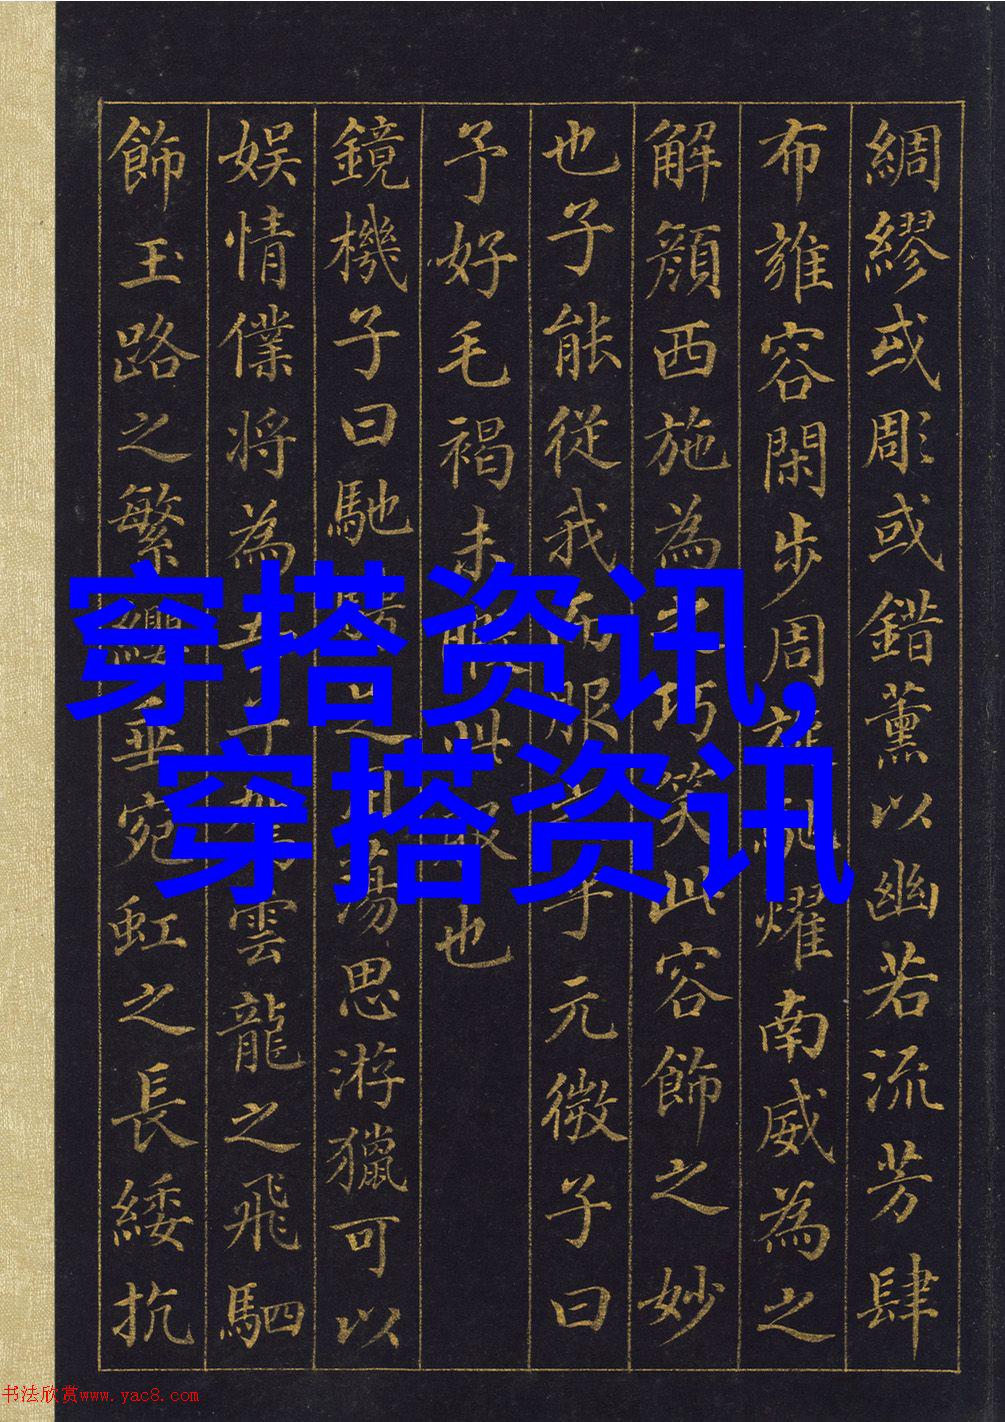 綢繆或彫或錯薰以幽若流芳肆
布雍容閑步周燿南威為之
解顏西施為巧笑此容飾之妙
也子能從我而服乎元微子曰
予好毛褐未暇此服也
鏡機子曰馳騁蕩思游獵可以
娛情僕將為子雲龍之飛駟
飾玉路之繁纓垂宛虹之長綏抗
穿搭资讯,
穿搭资讯
书法欣赏www.yac8.com